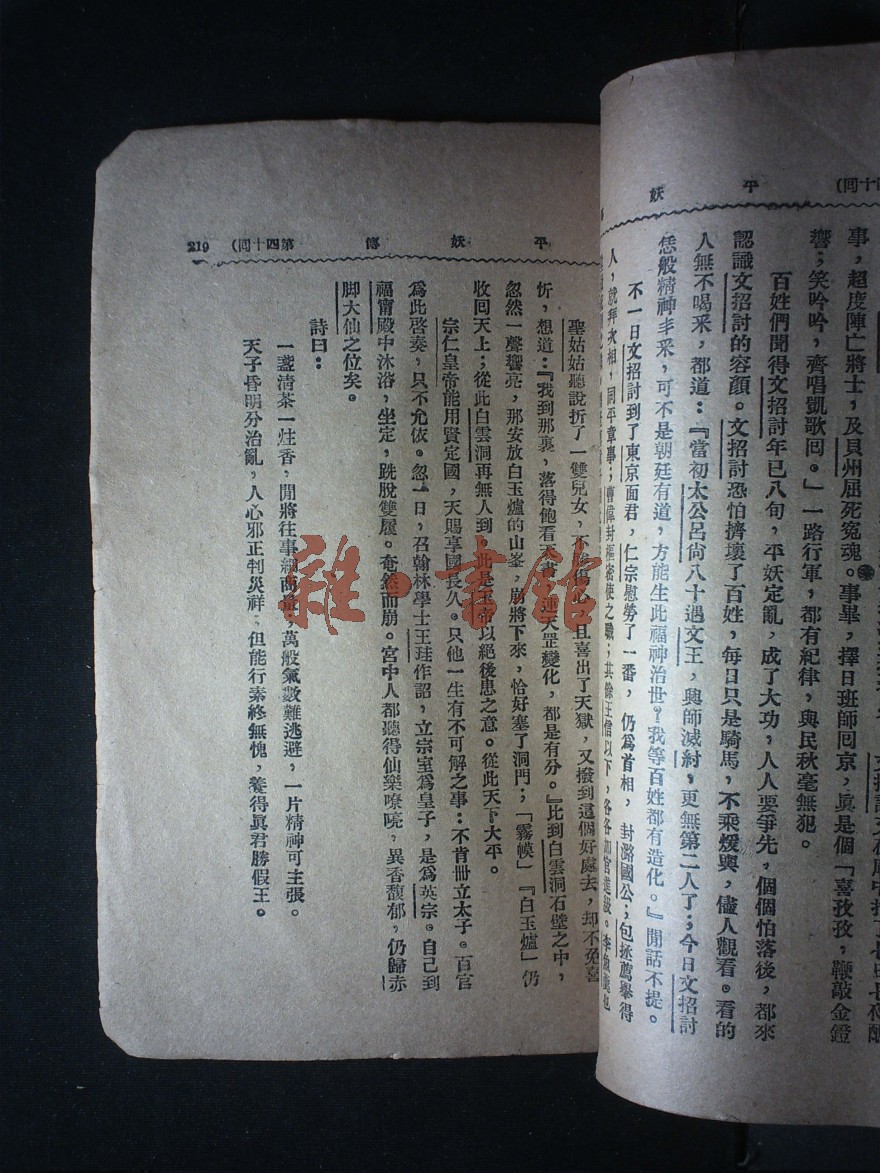 平 妖
十回)
事，超度陣亡將士，及貝州屈死冤魂。事畢，擇日班師回京，眞是個「喜孜孜，鞭敲金鐙
響；笑吟吟，齊唱凱歌回。」一路行軍，都有紀律，與民秋毫無犯。
百姓們聞得文招討年已八旬，平妖定亂，成了大功，人人要爭先，個個怕落後，都來
認識文招討的容顏。文招討恐怕擠壞了百姓，每日只是騎馬，不乘煖輿，儘人觀看。看的
人無不喝釆，都道：『當初太公呂尙八十遇文王，興師滅紂，更無第二人了；今日文招討
恁般精神丰釆，可不是朝廷有道，方能生此福神治世？我等百姓都有造化。』閒話不提。
不一日文招討到了東京面君，仁宗慰勞了一番，仍爲首相，封潞國公；包拯薦舉得
人，就拜次相，同平章事；曹偉封樞密使之職；其餘王信以下，各各加官進級。
平 妖 傳 第四十回) 219
聖姑姑聽說折了一雙兒女，不勝傷心，且喜出了天獄，又撥到這個好處去，却不免喜
忻，想道：『我到那裏，落得飽看天書，連天罡變化，都是有分。』比到白雲洞石壁之中，
忽然一聲響亮，那安放白玉爐的山峯，崩將下來，恰好塞了洞門；「霧幙」『白玉爐』仍
收回天上；從此白雲洞再無人到，此是玉帝以絕後患之意。從此天下大平。
宗仁皇帝能用賢定國，天賜享國長久。只他一生有不可解之事：不肯册立太子。百官
爲此啓奏，只不允依。忽一日，召翰林學士王珪作詔，立宗室爲皇子，是爲英宗。自己到
福甯殿中沐浴，坐定，跣脫雙履。奄然而崩。宮中人都聽得仙樂嘹喨，異香馥郁，仍歸赤
脚大仙之位矣。
詩曰：
一盞淸茶一炷香，閒將往事細商量；萬般氣數難逃避，一片精神可主張。
天子昏明分治亂，人心邪正判災祥；但能行素終無愧，養得眞君勝假王。
雜·書館